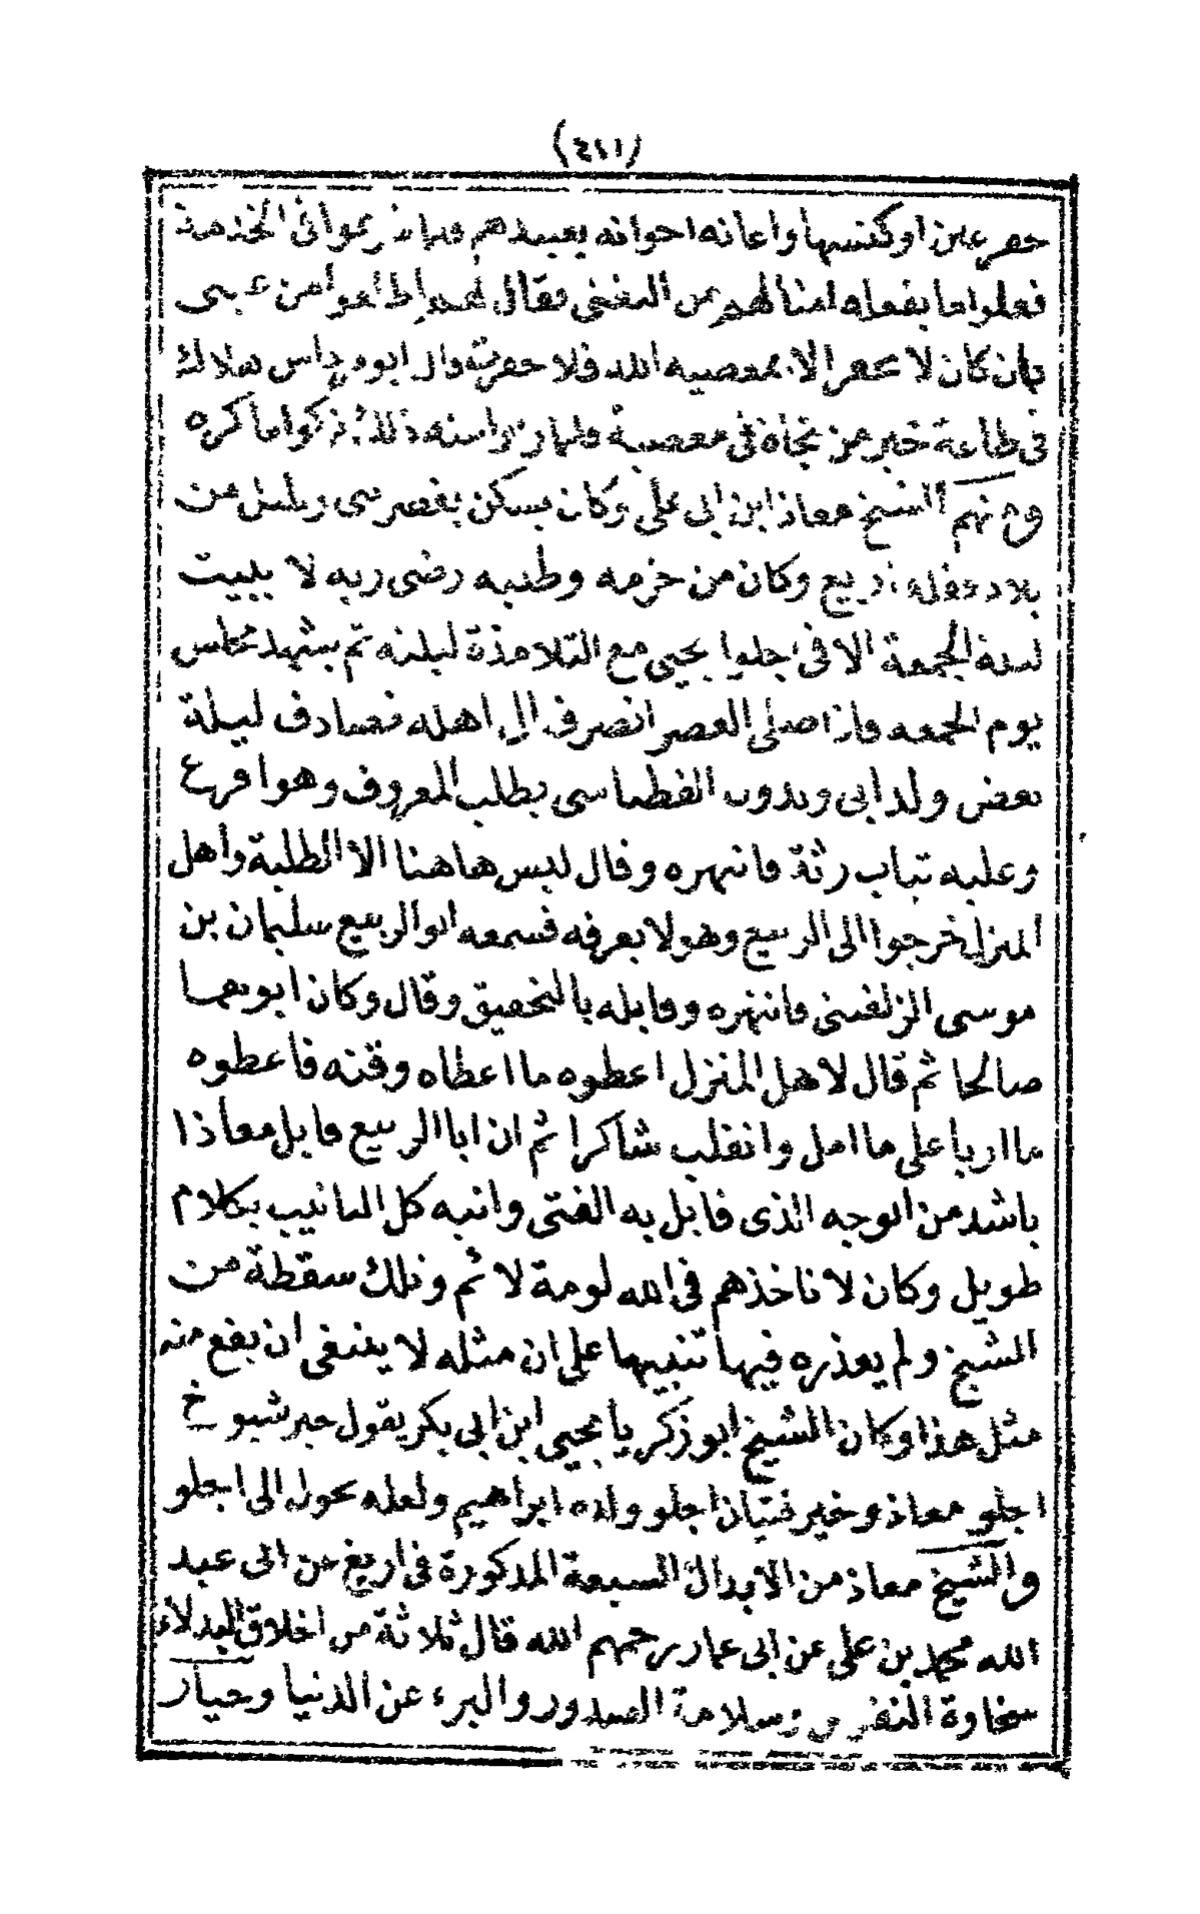 (٤١١)
حفر عين او كنسها واعانه اخوانه بعبيدهم فلما شرعوا فى الخدمة
فعلوا ما يفعله امثالهم من التغنى فقال لهم
بان كان لا يحفر الا بمعصية الله فلا حفرته قال ابو هلاك
فى طاعة خير من نجاة فى معصية فلما راوا منه ذلك تركوا ما كره
ومنهم الشيخ معاذ ابن ابى على وكان يسكن بقصر بنى من
بلاد اريغ وكان من حزمه وطلبه رضى ربه لا يبيت
ليلة الجمعة الا فى اجلوا يحيى مع التلامذة ليلته ثم يشهد مجلس
يوم الجمعه فاذا صلى العصر انصرف الى اهله فصادف ليلة
بعض ولد ابى ويدون الفطناسى يطلب المعروف وهو اقرع
وعليه ثياب رثة فانتهره وقال ليس هاهنا الا الطلبة واهل
المنزل خرجوا الى الربيع وهو لا يعرفه فسمعه ابو الربيع سليمان بن
موسى الزلفينى فانتهره وقابله بالتحقيق وقال وكان ابوهما
صالحا ثم قال لاهل المنزل اعطوه ما اعطاه وقته فاعطوه
ما اربا على ما امل وانقلب شاكرا ثم ان ابا الربيع قابل معاذا
باشد من الوجه الذى قابل به الفتى وانبه كل التانيب بكلام
طويل وكان لا تاخذهم فى الله لومة لائم وتلك سقطة من
الشيخ ولم يعذره فيها تنبيها على ان مثله لا ينبغى ان يقع منه
مثل هذا وكان الشيخ ابو زكرياء يحيى ابن ابى بكر يقول خير شيوخ
اجلو معاذ وخير فتيان اجلو ولده ابراهيم ولعله تحول الى اجلو
والشيخ معاذ من الابدال السبعة المذكورة فى اريغ عن ابى عبد
الله محمد بن على عن ابى عمار رحمهم الله قال ثلاثة من اخلاق البدلاء
سخاوة النفس وسلامة الصدور والبرء عن الدنيا وخيار